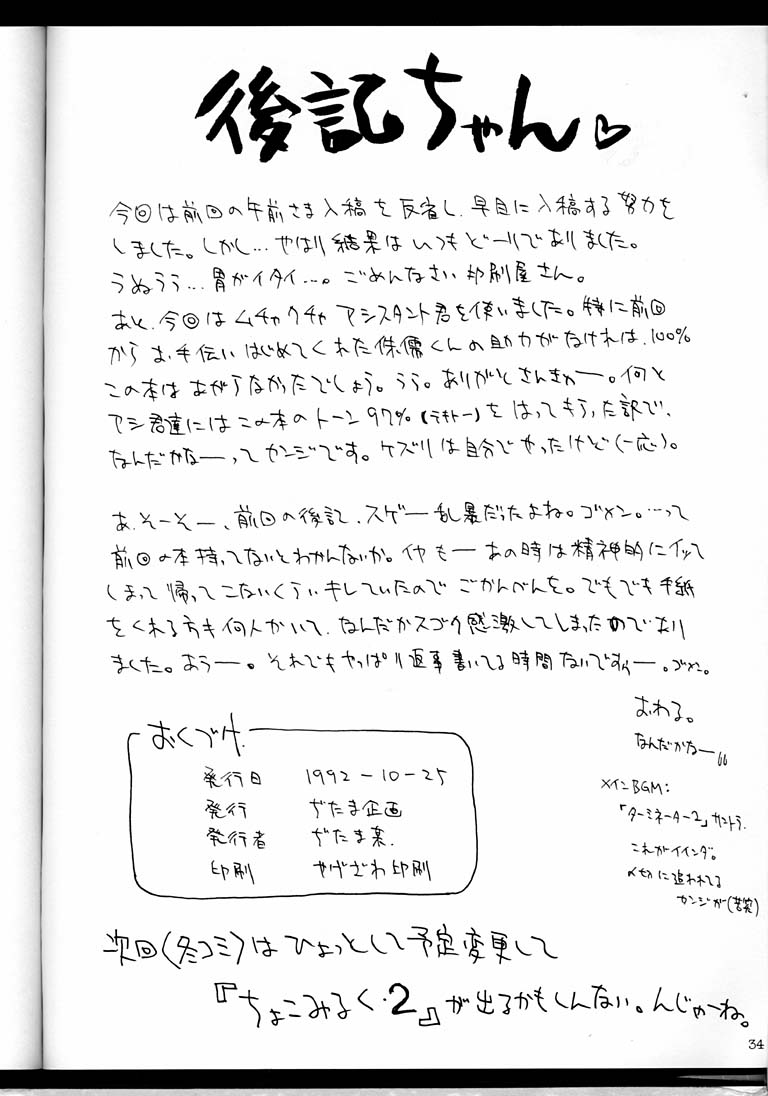 後記ちゃん♡
今回は前回の午前さま入稿を反省し、早目に入稿する努力を
しました。しかし…やはり結果はいつもどーりでありました。
うぬうう…胃がイタイ…。ごめんなさい印刷屋さん。
あと、今回はムチャクチャアシスタント君を使いました。特に前回
からお手伝いはじめてくれた侏儒くんの助力がなければ、100%
この本はあがらなかったでしょう。うう。ありがとさんきゅー。何と
アシ君達にはこの本のトーン97%(テキトー)をはってもらった訳で、
なんだかなーってカンジです。ケズリは自分でやったけど(一応)。
あ、そーそー、前回の後記、スゲー乱暴だったよね。ゴメン。…って
前回の本持ってないとわかんないか。イヤもーあの時は精神的にイッて
しまって帰ってこないくらいキしていたのでごかんべんを。でもでも手紙
をくれる方も何人かいて、なんだかスゴク感激してしまったのであり
ました。あうー。それでもやっぱり返事書いてる時間ないですぅー。ゴメン。
おわる。
なんだかなー
メインBGM:
「ターミネーター2」サントラ.
これがイインダ。
〆切に追われてる
カンジが(苦笑)
おくづけ.
発行日 1992-10-25
発行 ぢたま企画
発行者 ぢたま某.
印刷 やげざわ印刷
次回(冬コミ)はひょっとして予定変更して
『ちょこみるく・2』が出るかもしんない。んじゃーね。
34